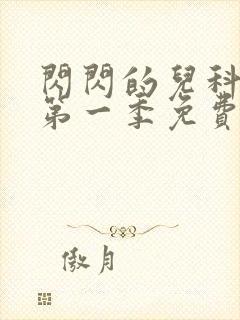 閃閃的兒科
第一季免費
傲月